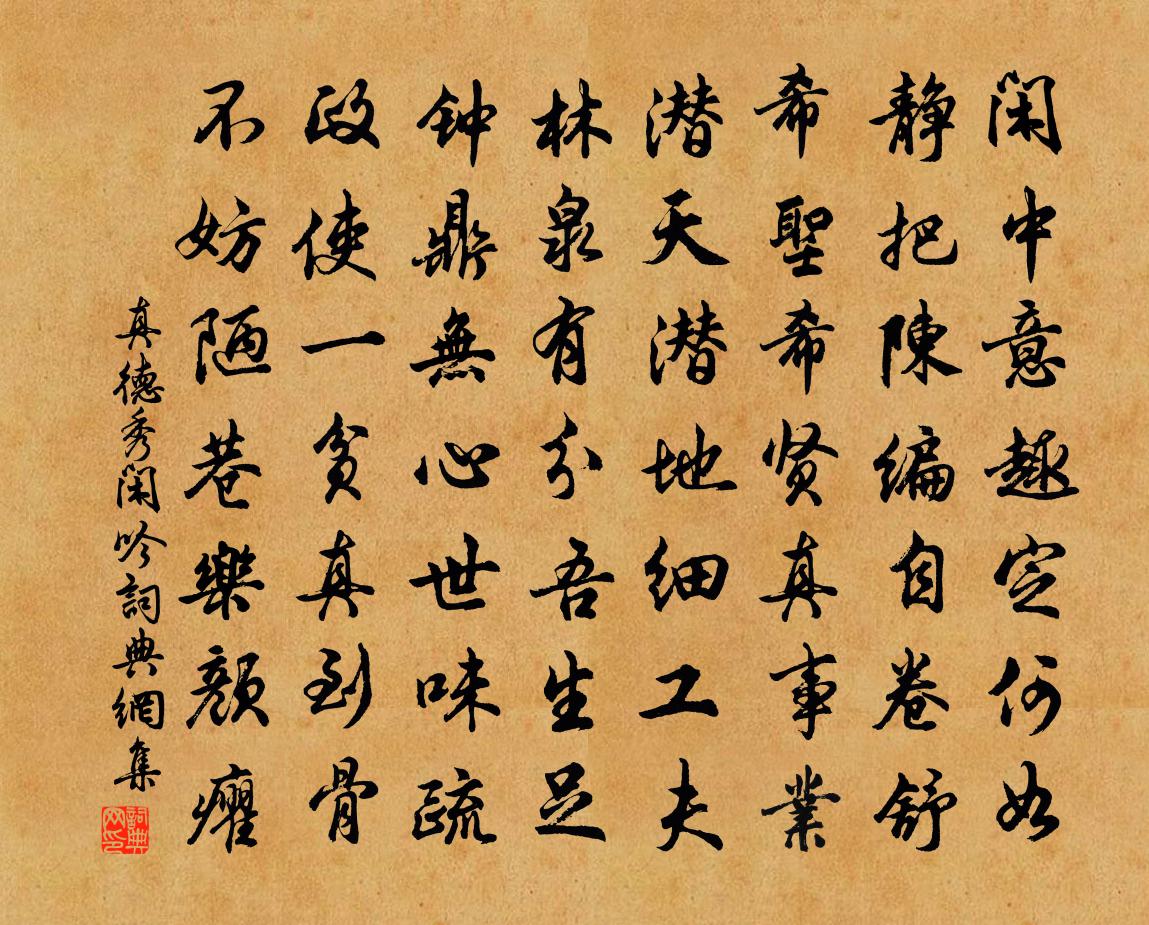 闲中意趣定何如
静把陳编自卷舒
希聖希贤真事業
潜天潜地细工夫
林泉有分吾生足
钟鼎無心世味疏
政使一贫真到骨
不妨陋巷樂颜癯
真德秀闲吟詞典網集
詞典网印